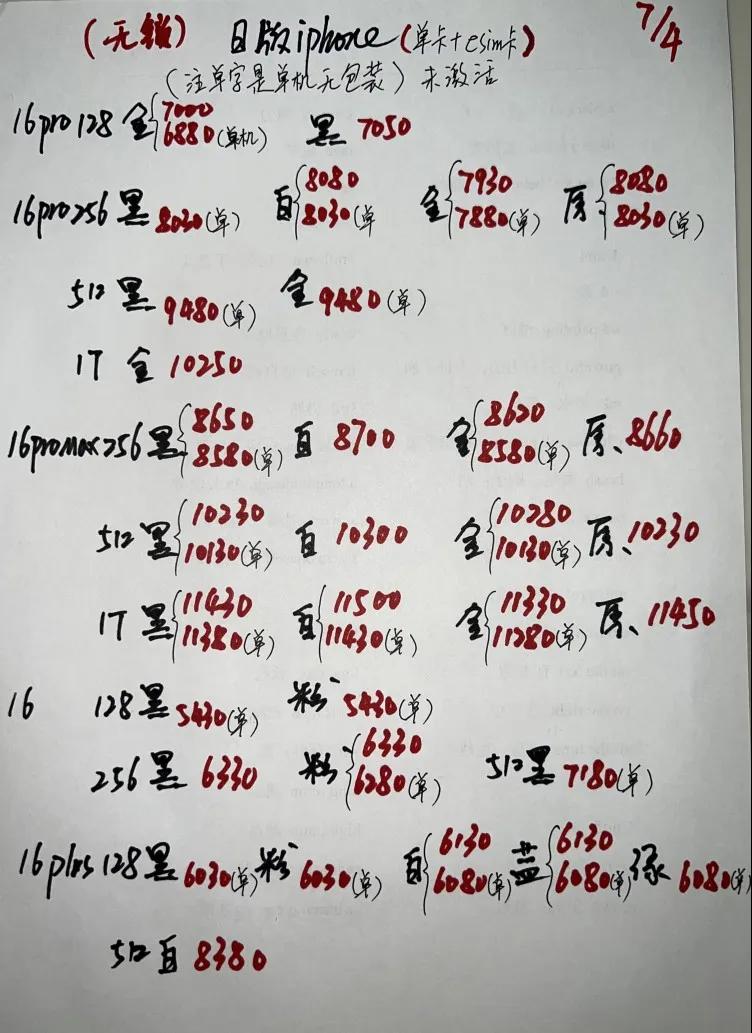 (无锁) 日版iphone(单卡+esim卡) 7/4
(注单字是单机无包装)未激活
16pro128 金{7000 6880(单机) 黑 7050
16pro256 黑 8030(单) 白{8080 8030(单 金{7930 7880(单) 原{8080 8030(单)
512 黑 9480(单) 金 9480(单)
1T 金 10250
16promax256 黑{8650 8580(单) 白 8700 金{8620 8580(单) 原、8660
512 黑{10230 10130(单) 白 10300 金{10280 10130(单) 原、10230
1T 黑{11430 11380(单) 白{11500 11430(单) 金{11330 11280(单) 原、11450
16 128黑 5430(单) 粉 5430(单)
256 黑 6330 粉{6330 6280(单) 512黑 7180(单)
16plus128黑 6030(单) 粉 6030(单) 白{6130 6080(单) 蓝{6130 6080(单) 绿 6080(单)
512白 8380